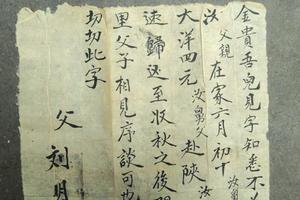 金貴吾兒見字知悉不
汝父親在家六月初十
大洋四元汝舅父赴陝汝
速歸返至收秋之後
里父子相見序談可也
切切此字
父 刘明